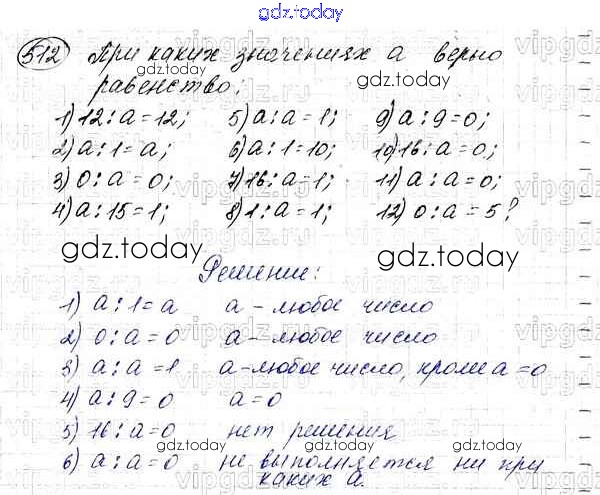 gdz.today
512 При каких значениях а верно
равенство:
gdz.today gdz.today
1) 12 : а = 12; 5) а : а = 1; 9) а : 9 = 0;
2) а : 1 = а; 6) а : 1 = 10; 10) 16 : а = 0;
3) 0 : а = 0; 7) 16 : а = 1; 11) а : а = 0;
4) а : 15 = 1; 8) 1 : а = 1; 12) 0 : а = 5?
gdz.today gdz.today
Решение:
1) а : 1 = а а - любое число
2) 0 : а = 0 а - любое число
3) а : а = 1 а - любое число, кроме а = 0
4) а : 9 = 0 а = 0
5) 16 : а = 0 нет решения
gdz.today gdz.today gdz.today
6) а : а = 0 не выполняется ни при
каких а.
vipgdz.ru